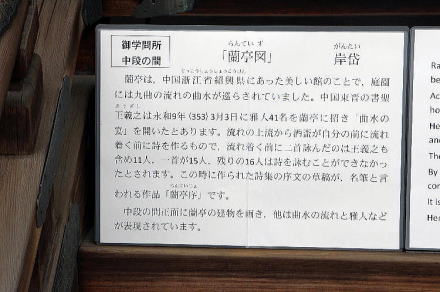 御学問所
中段の間
らんてい ず
「蘭亭図」
がんたい
岸岱
せっこうしょうしょうこうけん
蘭亭は、中国浙江省紹興県にあった美しい館のことで、庭園
には九曲の流れの曲水が巡らされていました。中国東晋の書聖
おうぎし
王義之は永和9年 (353) 3月3日に雅人41名を蘭亭に招き「曲水の
宴」を開いたとあります。流れの上流から酒盃が自分の前に流れ
着く前に詩を作るもので、流れ着く前に二首詠んだのは王義之も
含め11人、一首が15人、残りの16人は詩を詠むことができなかっ
たとされます。この時に作られた詩集の序文の草稿が、名筆と言
らんていじょ
われる作品「蘭亭序」です。
中段の間正面に蘭亭の建物を画き、他は曲水の流れと雅人など
が表現されています。
Ra
be
Ac
He
flo
The
By
con
It is
Her